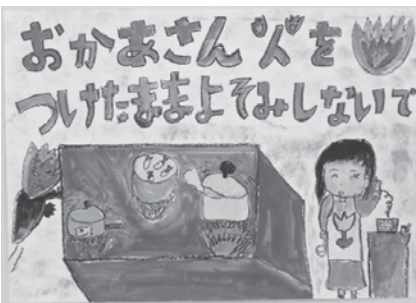 おかあさん火を
つけたままよそみしないで